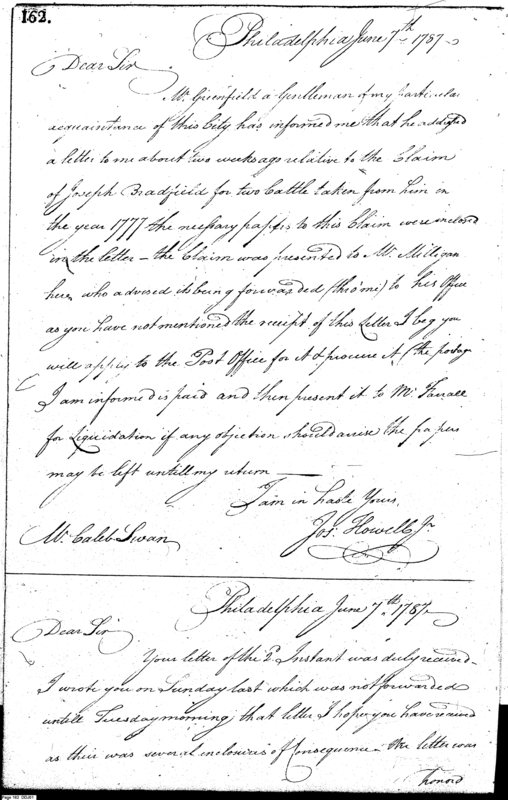 162.
Philadelphia June 7th 1787
Dear Sir
Mr. Greenfield a Gentleman of my particular
acquaintance of this City has informed me that he addressed
a letter to me about two weeks ago relative to the Claim
of Joseph Bradfield for two Cattle taken from him in
the year 1777 the nessary papers to this Claim were inclosed
in the letter – the Claim was presented to Mr. Milligan
here, who advised its being forwarded (thro' me) to his Office
as you have not mentioned the receipt of this Letter I beg you
will apply to the Post Office for it & procure it (the postage
I am informed is paid and then present it to Mr. Farrall
for Liquidation if any objection should arise the papers
may be left untill my return
I am in haste Yours,
Jos: Howell Jr
Mr. Caleb Swan
Philadelphia June 7th 1787
Dear Sir
Your letter of the 2d. Instant was duly received –
I wrote you on Sunday last which was not forwarded
untill Tuesday morning, that letter I hope you have received
as their was several inclosures of Consequence – the letter was
honord
Page 162 DDJ01